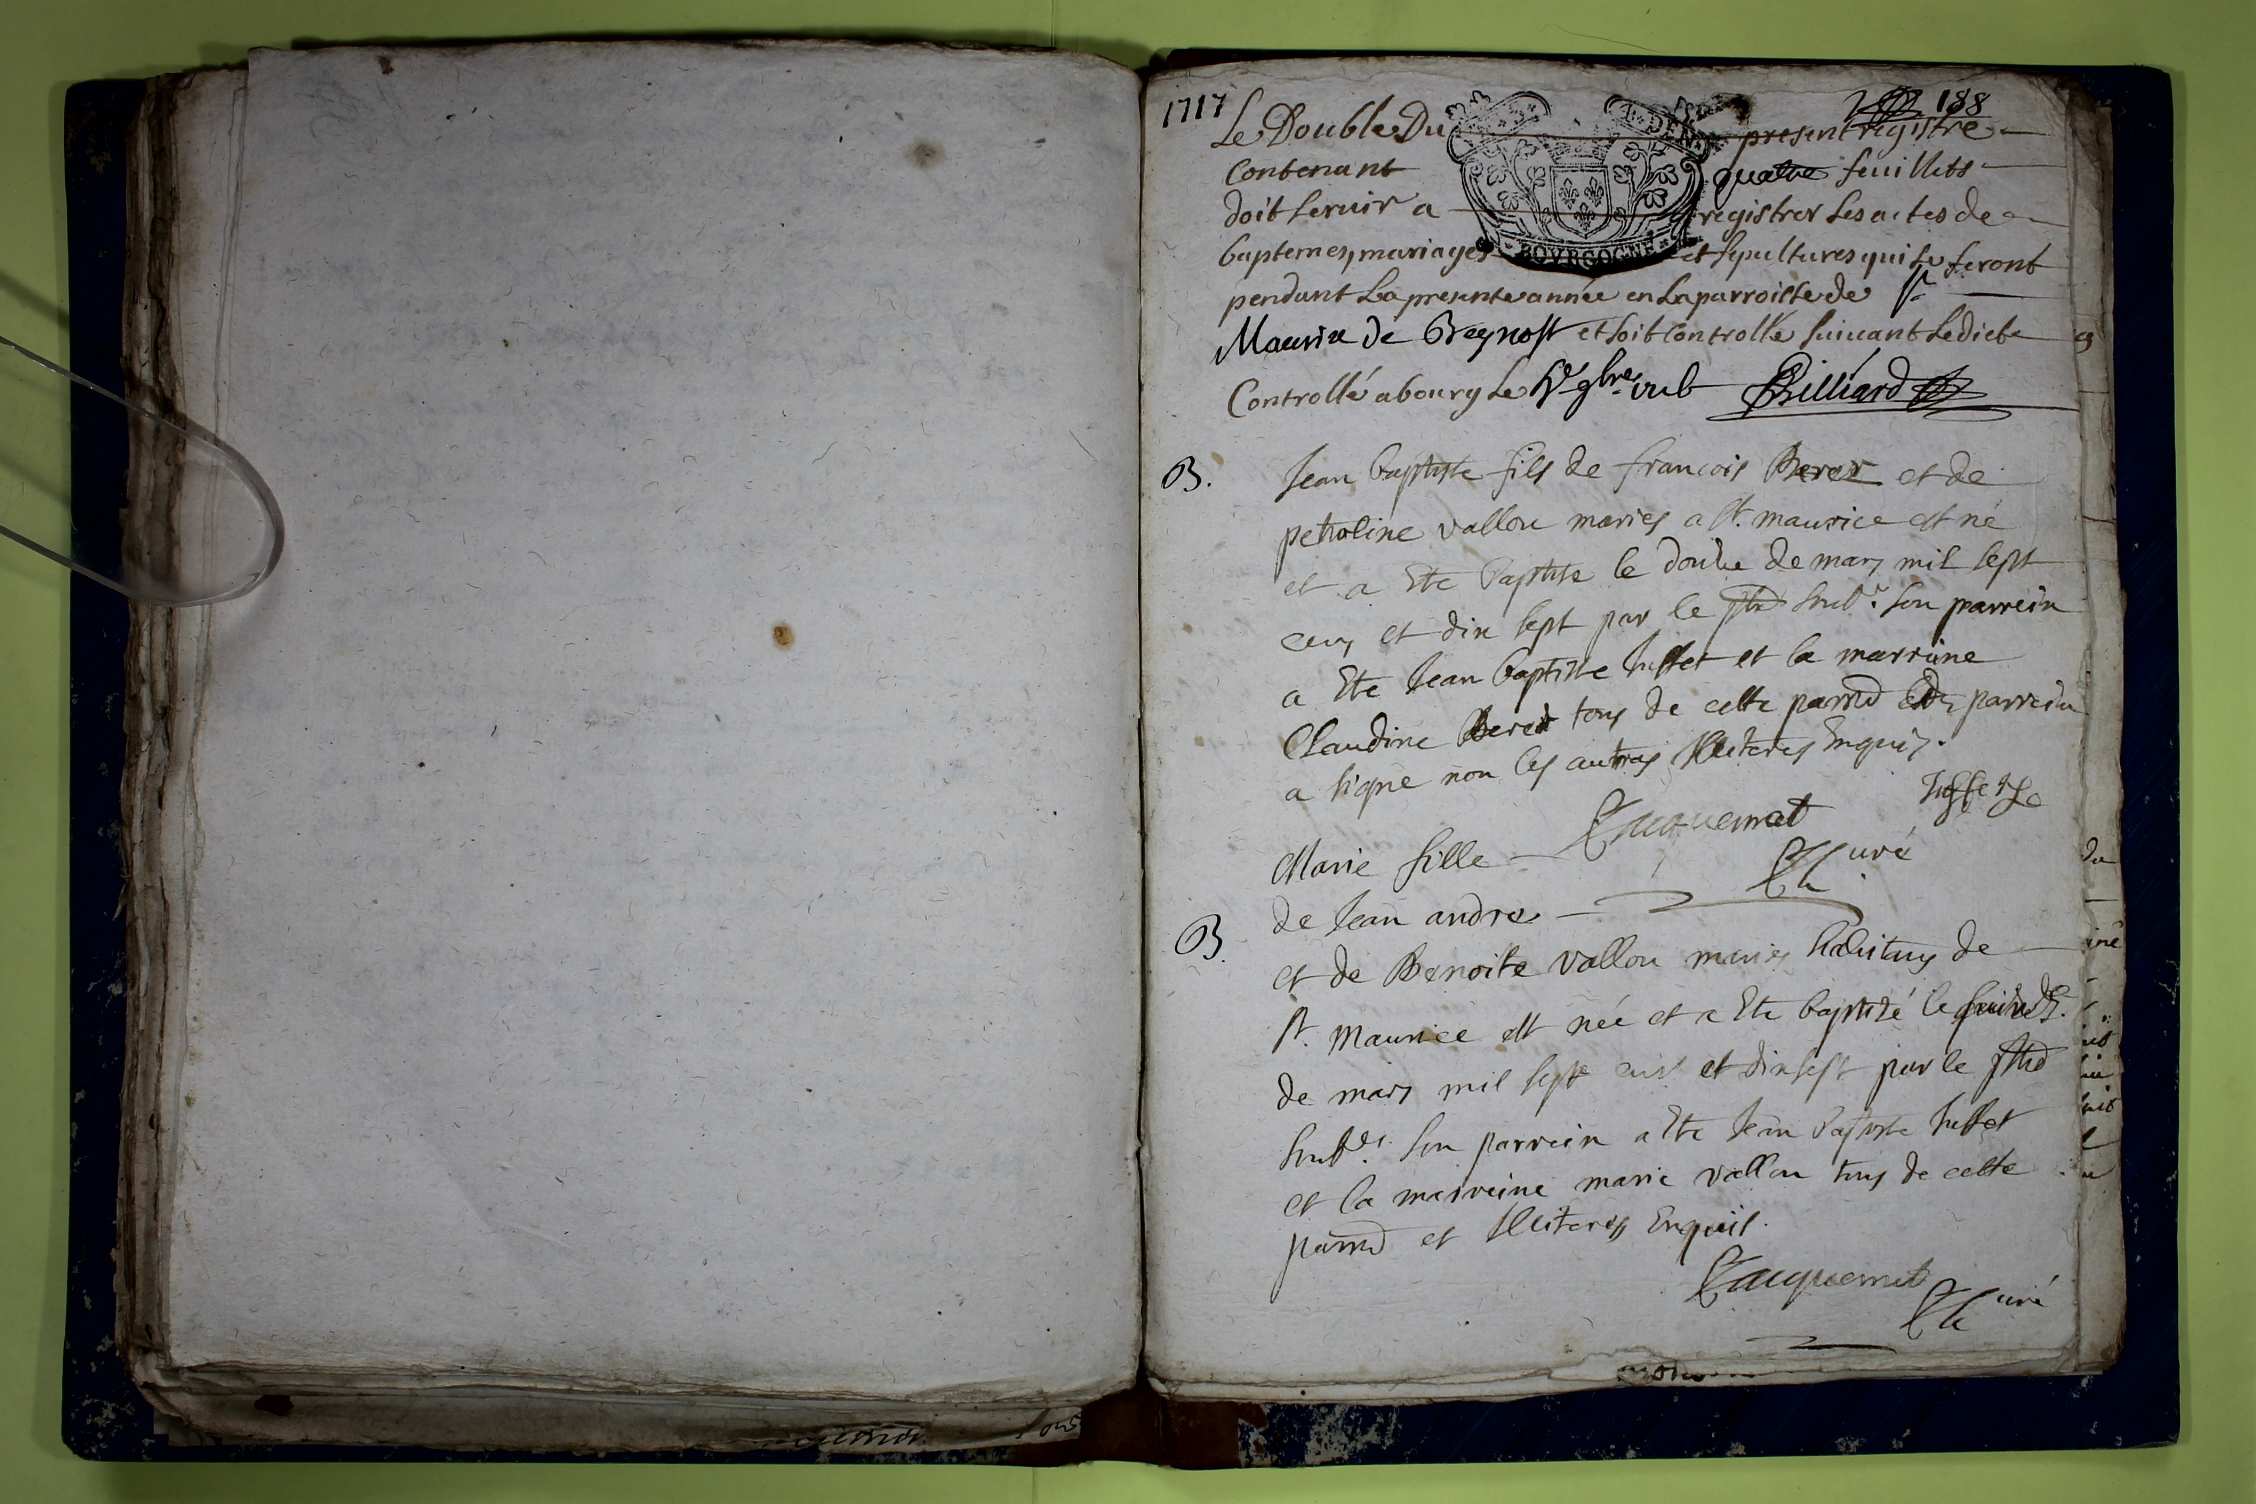 1717
188
Le Double Du present registre
contenant quatre feuillets
doit servir a registrer les actes de
baptemes, mariages et sepultures qui se feront
pendant la presente année en la parroisse de St
Maurice de Beynost et soit controllé suivant ledict
Controllé a bourg le 9bre Billiard
BOVRGOGNE
B.
Jean baptiste fils de francois Beret et de
petroline vallou maries a St. maurice est né
et a Ete baptise le douze de mars mil sept
cens et dix sept par le soub.é son parrein
a Ete Jean baptiste Juffet et la marraine
Claudine Beret tous de cette parroi parrein
a signé non les autres Illiteres Enquis.
Juffet
Jacquemet
Curé
B.
Marie fille
de Jean andre
et de Benoite vallou maries habitans de
St. Maurice est née et a Ete baptizé le
de mars mil sept cens et dix sept par le
soub.é son parrein a Ete Jean Baptiste Juffet
et la marreine marie vallou tous de cette
parroi et Illiteres Enquis.
Jacquemet
Curé